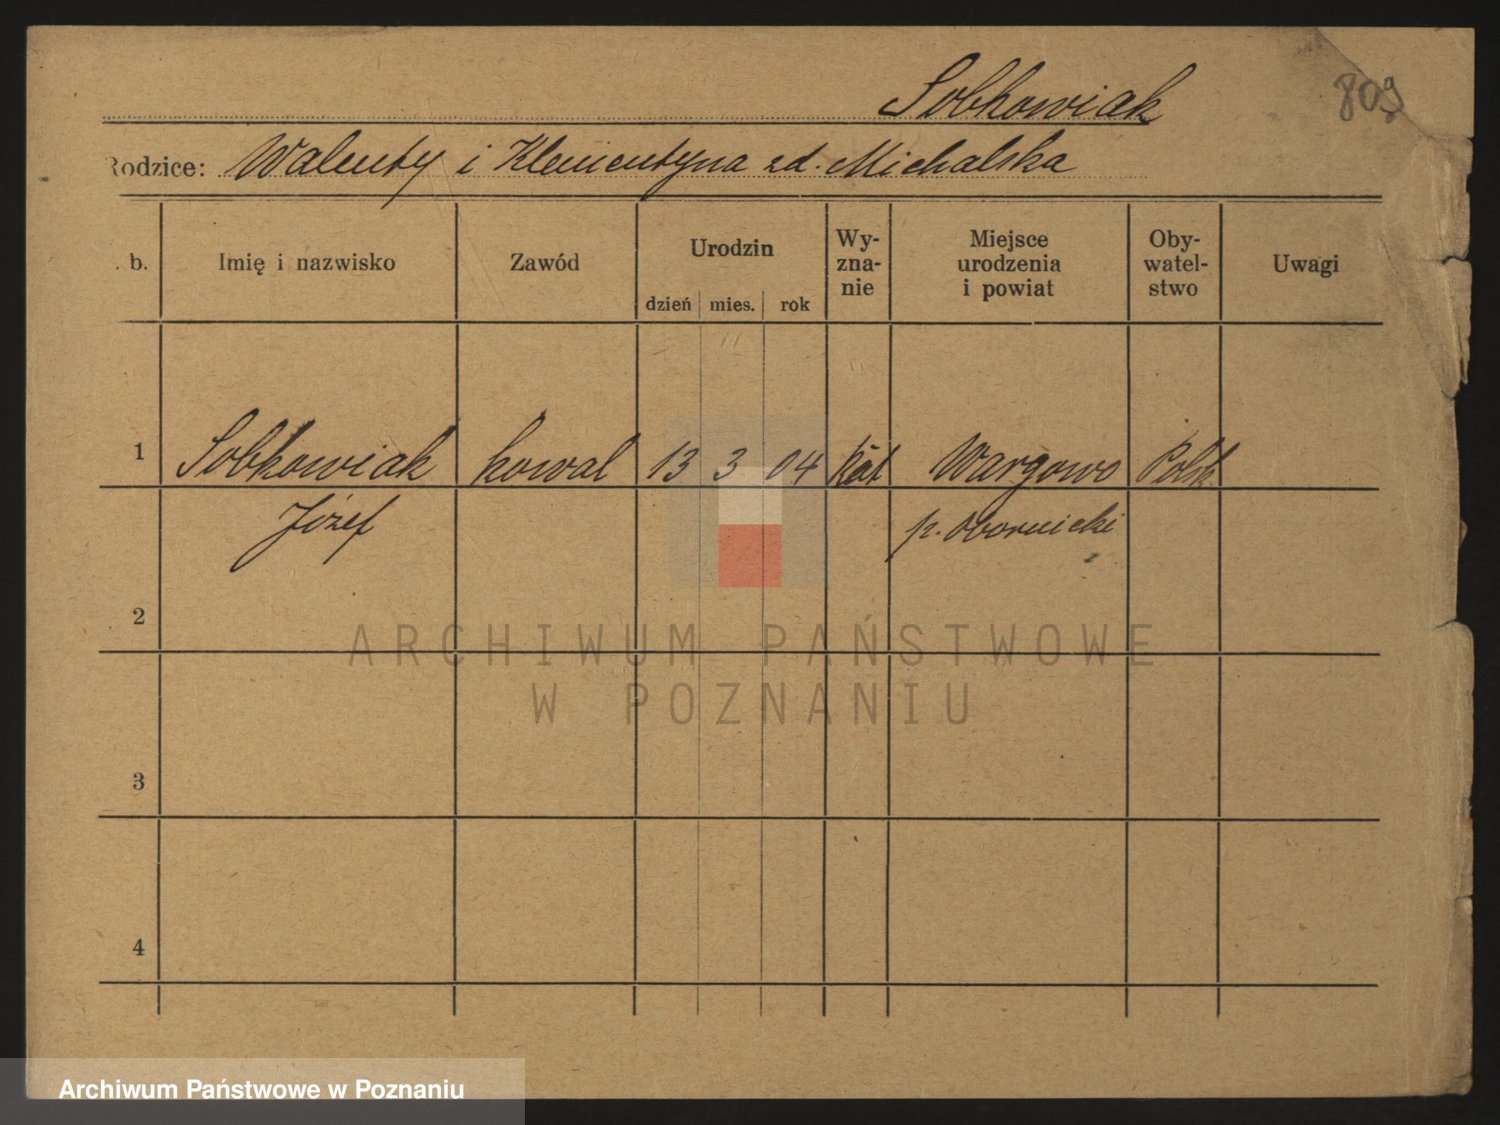 Sobkowiak
809
Rodzice: Walenty i Klementyna zd. Michalska
. b.
Imię i nazwisko
Zawód
Urodzin
dzień mies. rok
Wy-
zna-
nie
Miejsce
urodzenia
i powiat
Oby-
watel-
stwo
Uwagi
1 Sobkowiak kowal 13 3 04 kat Wargowo Polsk.
Józef p. obornicki
2
3
4
ARCHIWUM PAŃSTWOWE
W POZNANIU
Archiwum Państwowe w Poznaniu